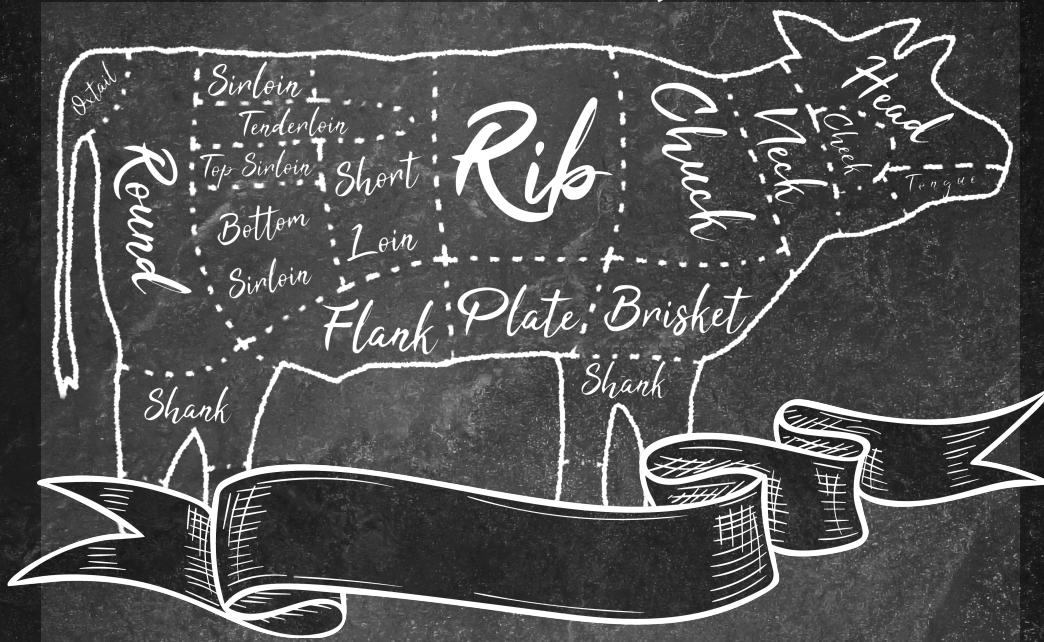 Oxtail
Sirloin
Tenderloin
Top Sirloin
Bottom
Sirloin
Short
Loin
Round
Rib
Chuck
Neck
Head
Cheek
Tongue
Flank
Plate
Brisket
Shank
Shank